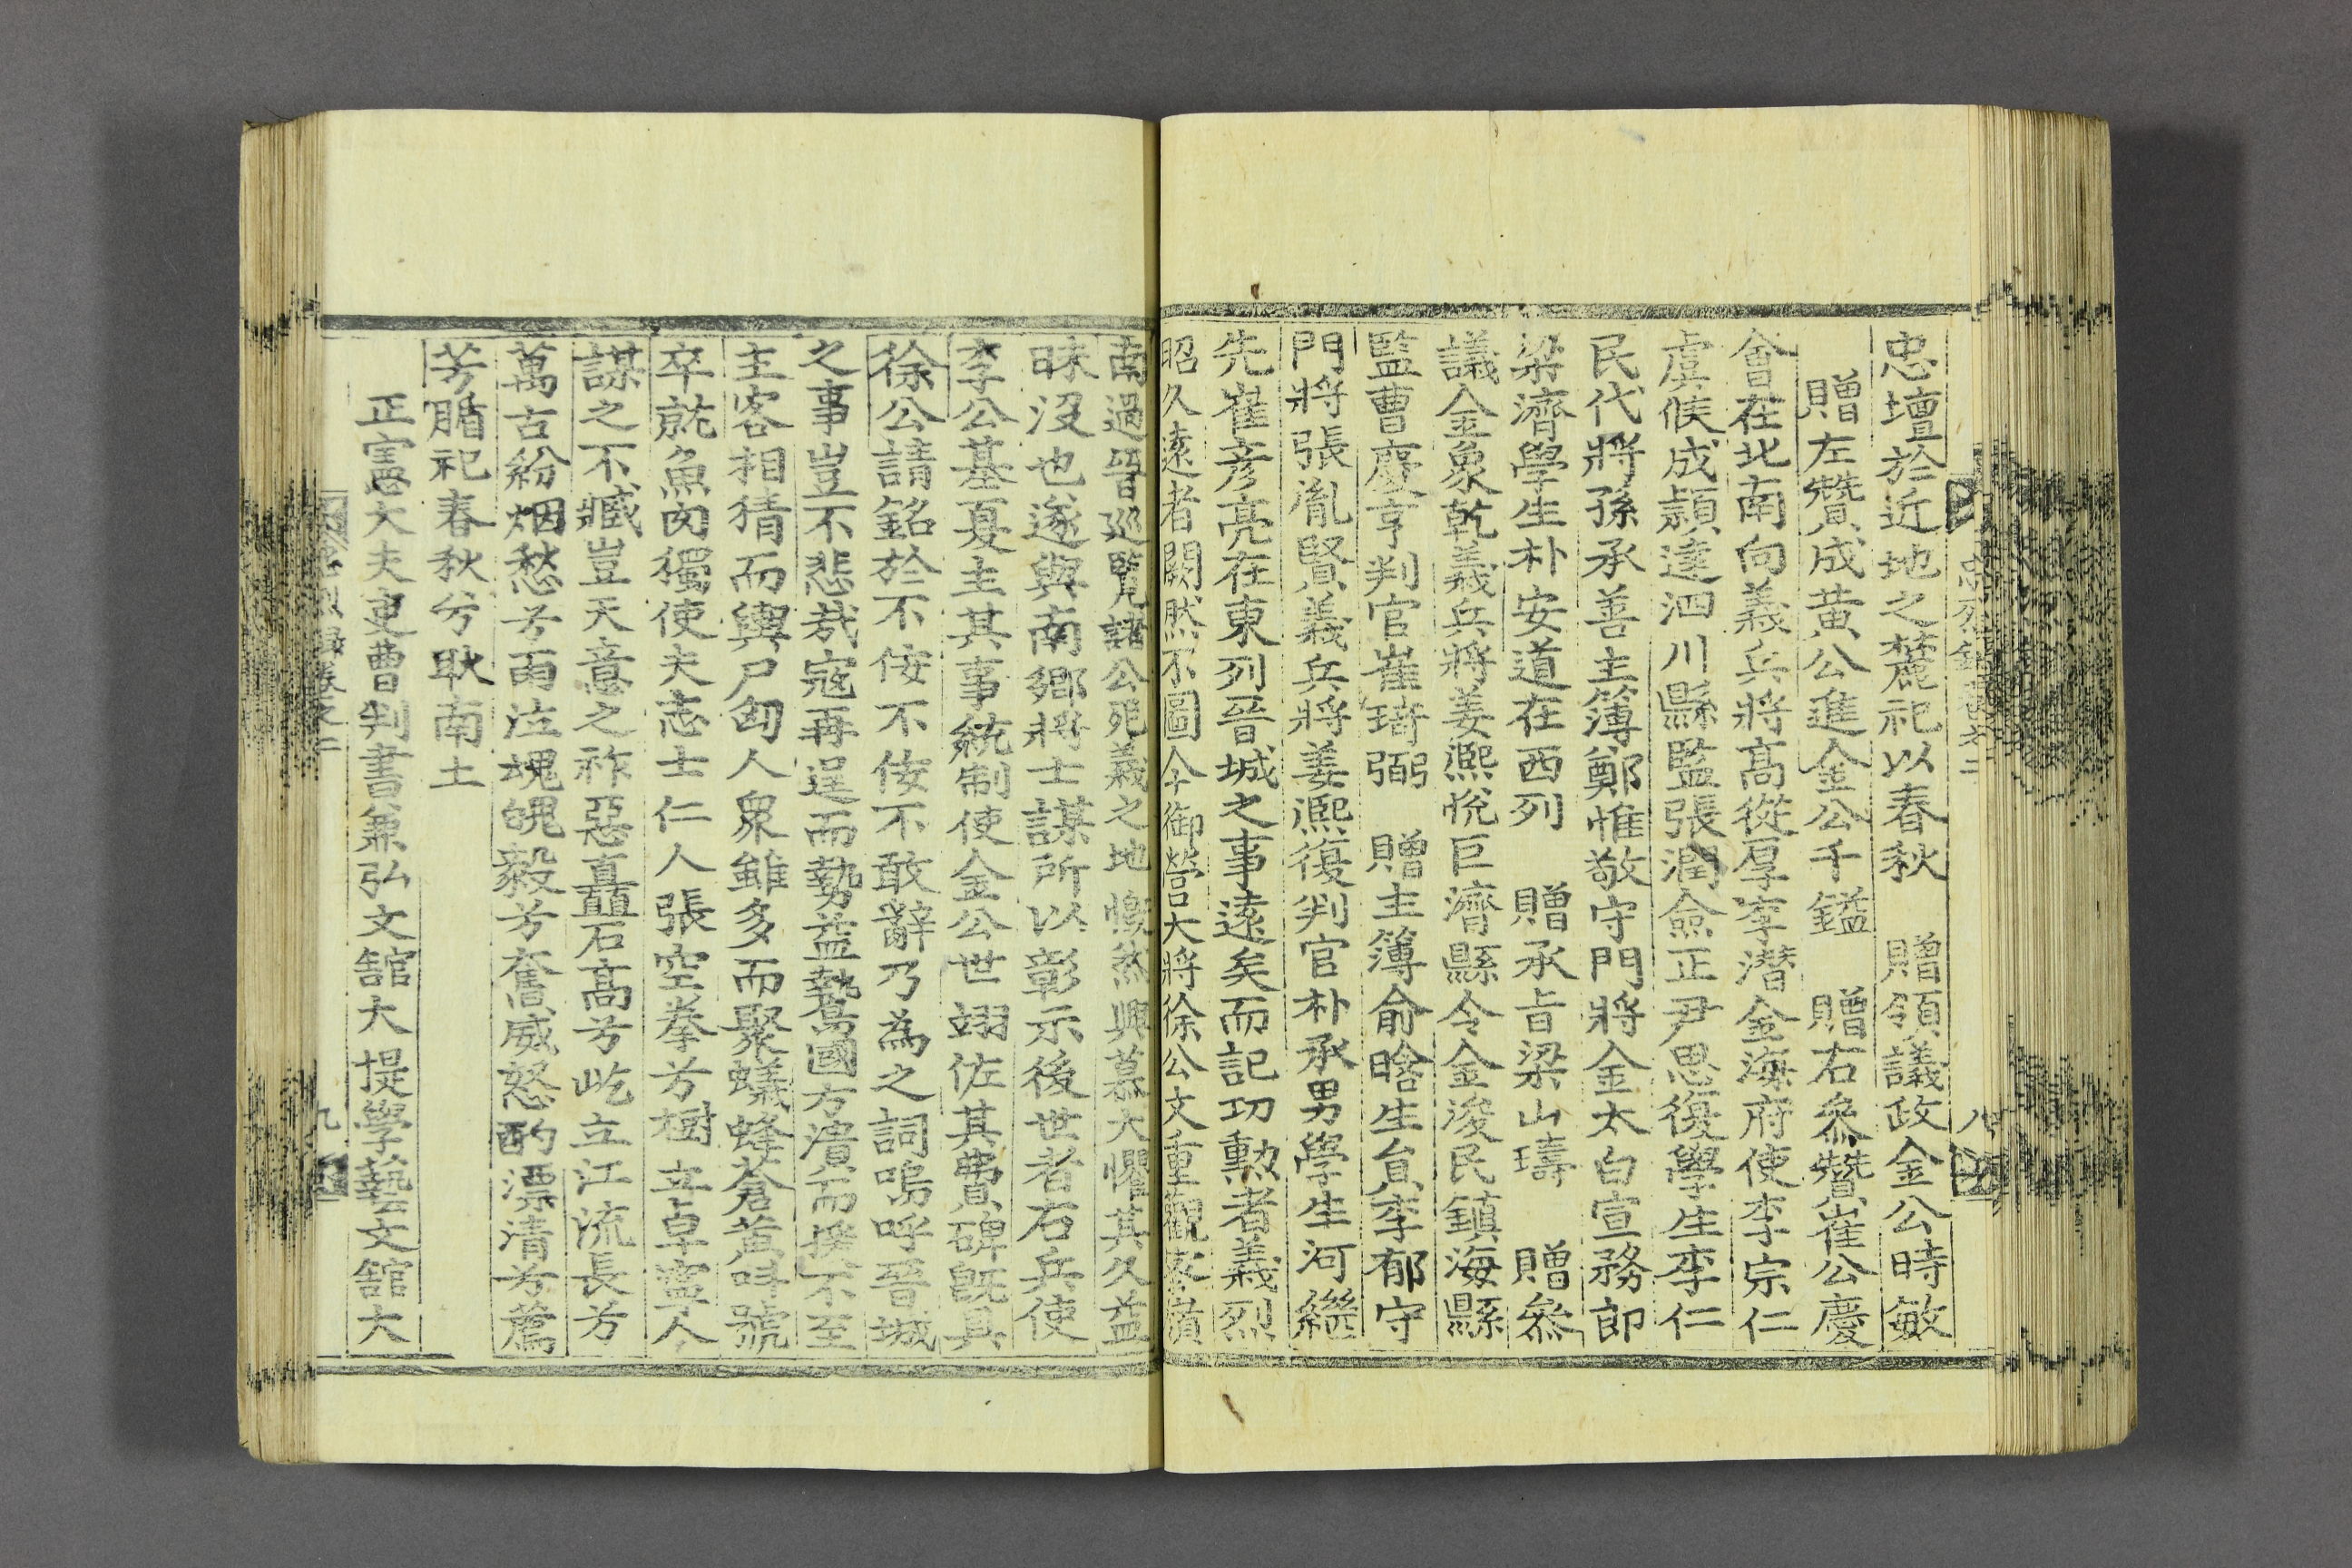 忠壇於近地之麓祀以春秋　贈領議政金公時敏
贈左贊成黃公進金公千鎰　贈右叅贊崔公慶
會在北南向義兵將高從厚李潛金海府使李宗仁
虞候成頴達泗川縣監張潤僉正尹思復學生李仁
民代將孫承善主簿鄭惟敬守門將金太白宣務郎
梁濟學生朴安道在西列　贈承旨梁山璹　贈叅
議金象乾義兵將姜熙悅巨濟縣令金浚民鎮海縣
監曹慶亨判官崔琦弼　贈主簿俞晗生貟李郁守
門將張胤賢義兵將姜熙復判官朴承男學生河繼
先崔彦亮在東列晉城之事遠矣而記功勲者義烈
昭久遠者闕然不圖今御營大將徐公文重觀察嶺
南過晉巡覽諸公死義之地慨然興慕大懼其久益
昧沒也遂與南鄉將士謀所以彰示後世者石兵使
李公基夏主其事統制使金公世翊佐其費碑旣具
徐公請銘於不佞不佞不敢辭乃為之詞嗚呼晉城
之事豈不悲哉寇再逞而勢益鷙國方潰而援不至
主客相猜而輿尸匈人衆雖多而聚蟻蜂蒼黃呌號
卒就魚肉獨使夫志士仁人張空拳兮樹立卓寧人
謀之不臧豈天意之祚惡矗矗石高兮屹立江流長兮
萬古紛烟愁兮雨泣塊魄毅兮奮威怒酌漂清兮薦
芳腯祀春秋兮耿南土
正憲大夫吏曹判書兼弘文舘大提學藝文舘大
忠烈錄卷之二
八
九